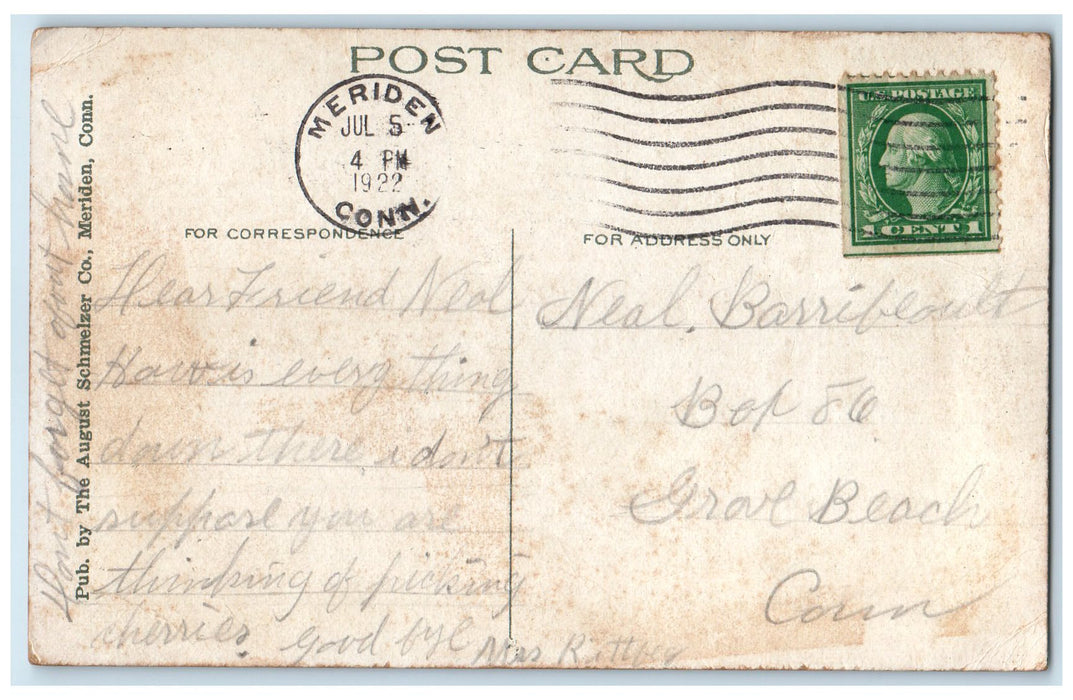 POST CARD
MERIDEN
JUL 5
4 PM
1922
CONN.
U.S. POSTAGE
1 CENT 1
FOR CORRESPONDENCE
FOR ADDRESS ONLY
Dear Friend Neal
How is every thing
down there i don't
suppose you are
thinking of picking
cherries. good bye
Mrs
Neal. Barribeoult
Box 86
Grove Beach
Conn
Pub. by The August Schmelzer Co., Meriden, Conn.
Dont forget